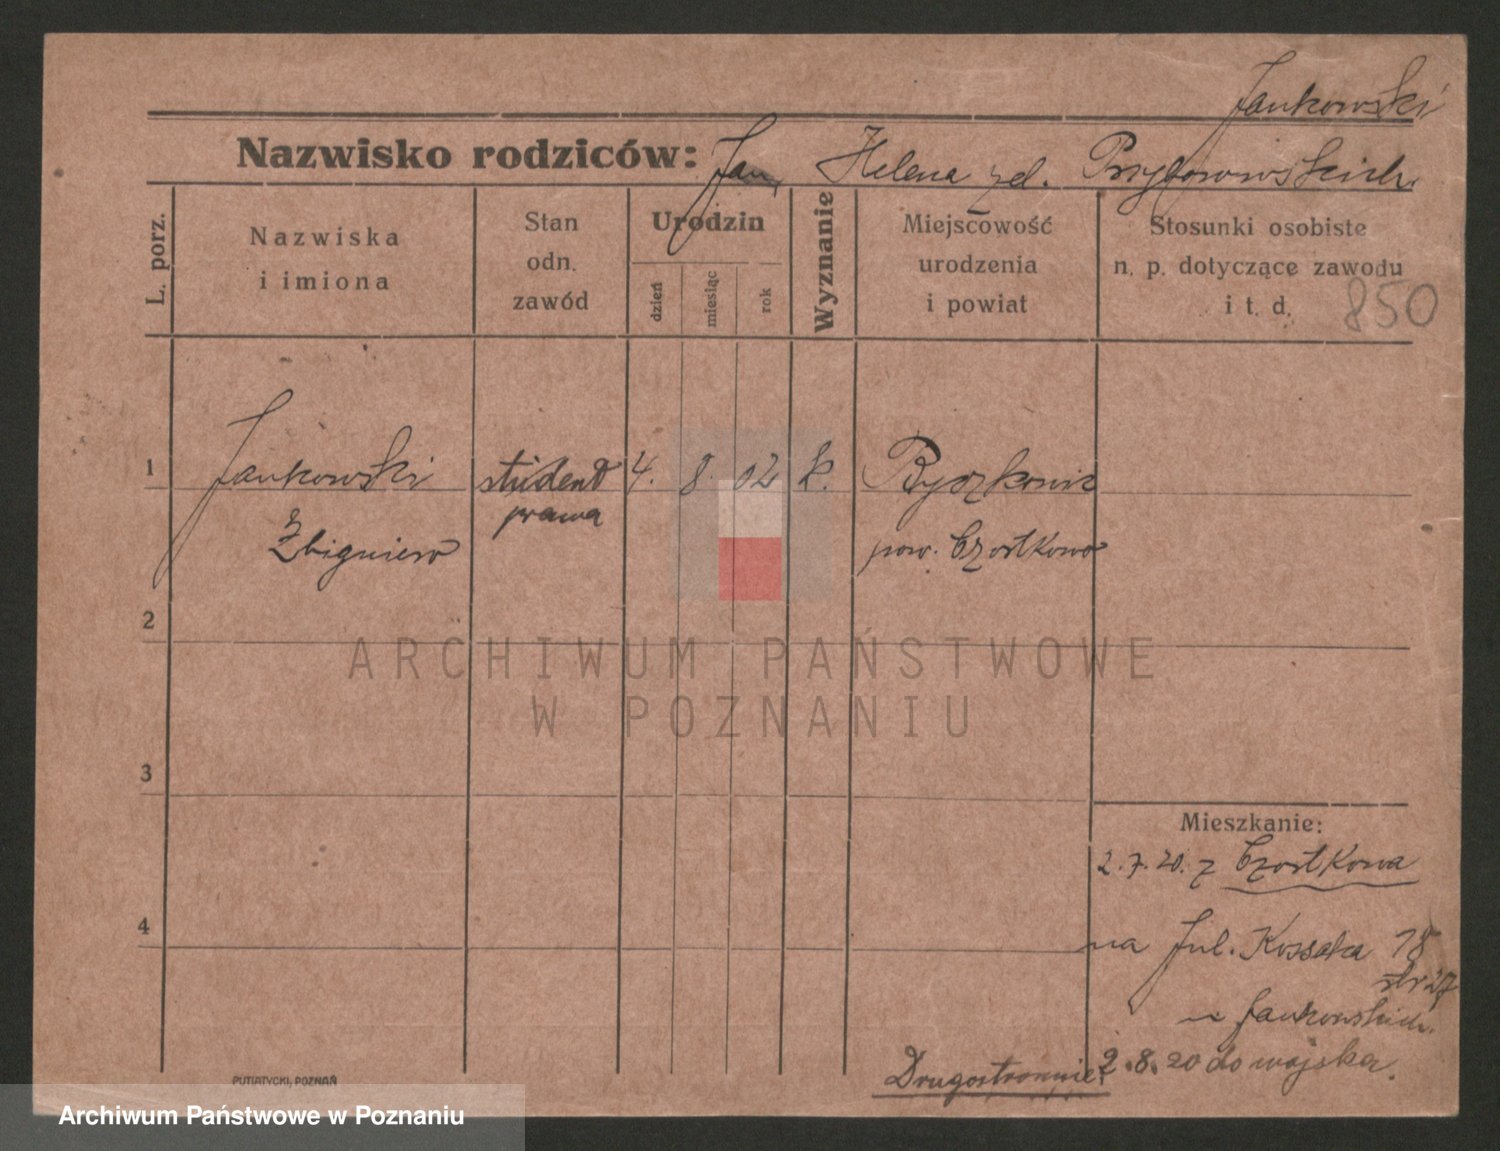 Jankowski
Nazwisko rodziców: Jan, Helena zd.
L. porz.
Nazwiska i imiona
Stan odn. zawód
Urodzin
dzień miesiąc rok
Wyznanie
Miejscowość urodzenia i powiat
Stosunki osobiste n. p. dotyczące zawodu i t. d.
850
1 Jankowski student 4. 8. 02 k.
Zbigniew prawa pow. Czortkowo
2
ARCHIWUM PAŃSTWOWE
W POZNANIU
3
Mieszkanie:
2.7.20. z Czortkowa
4
na Jul. Kossaka 18
str 27
u Jankowskich.
Drugostronnie! 2.8.20 do wojska.
PUTIATYCKI, POZNAŃ
Archiwum Państwowe w Poznaniu